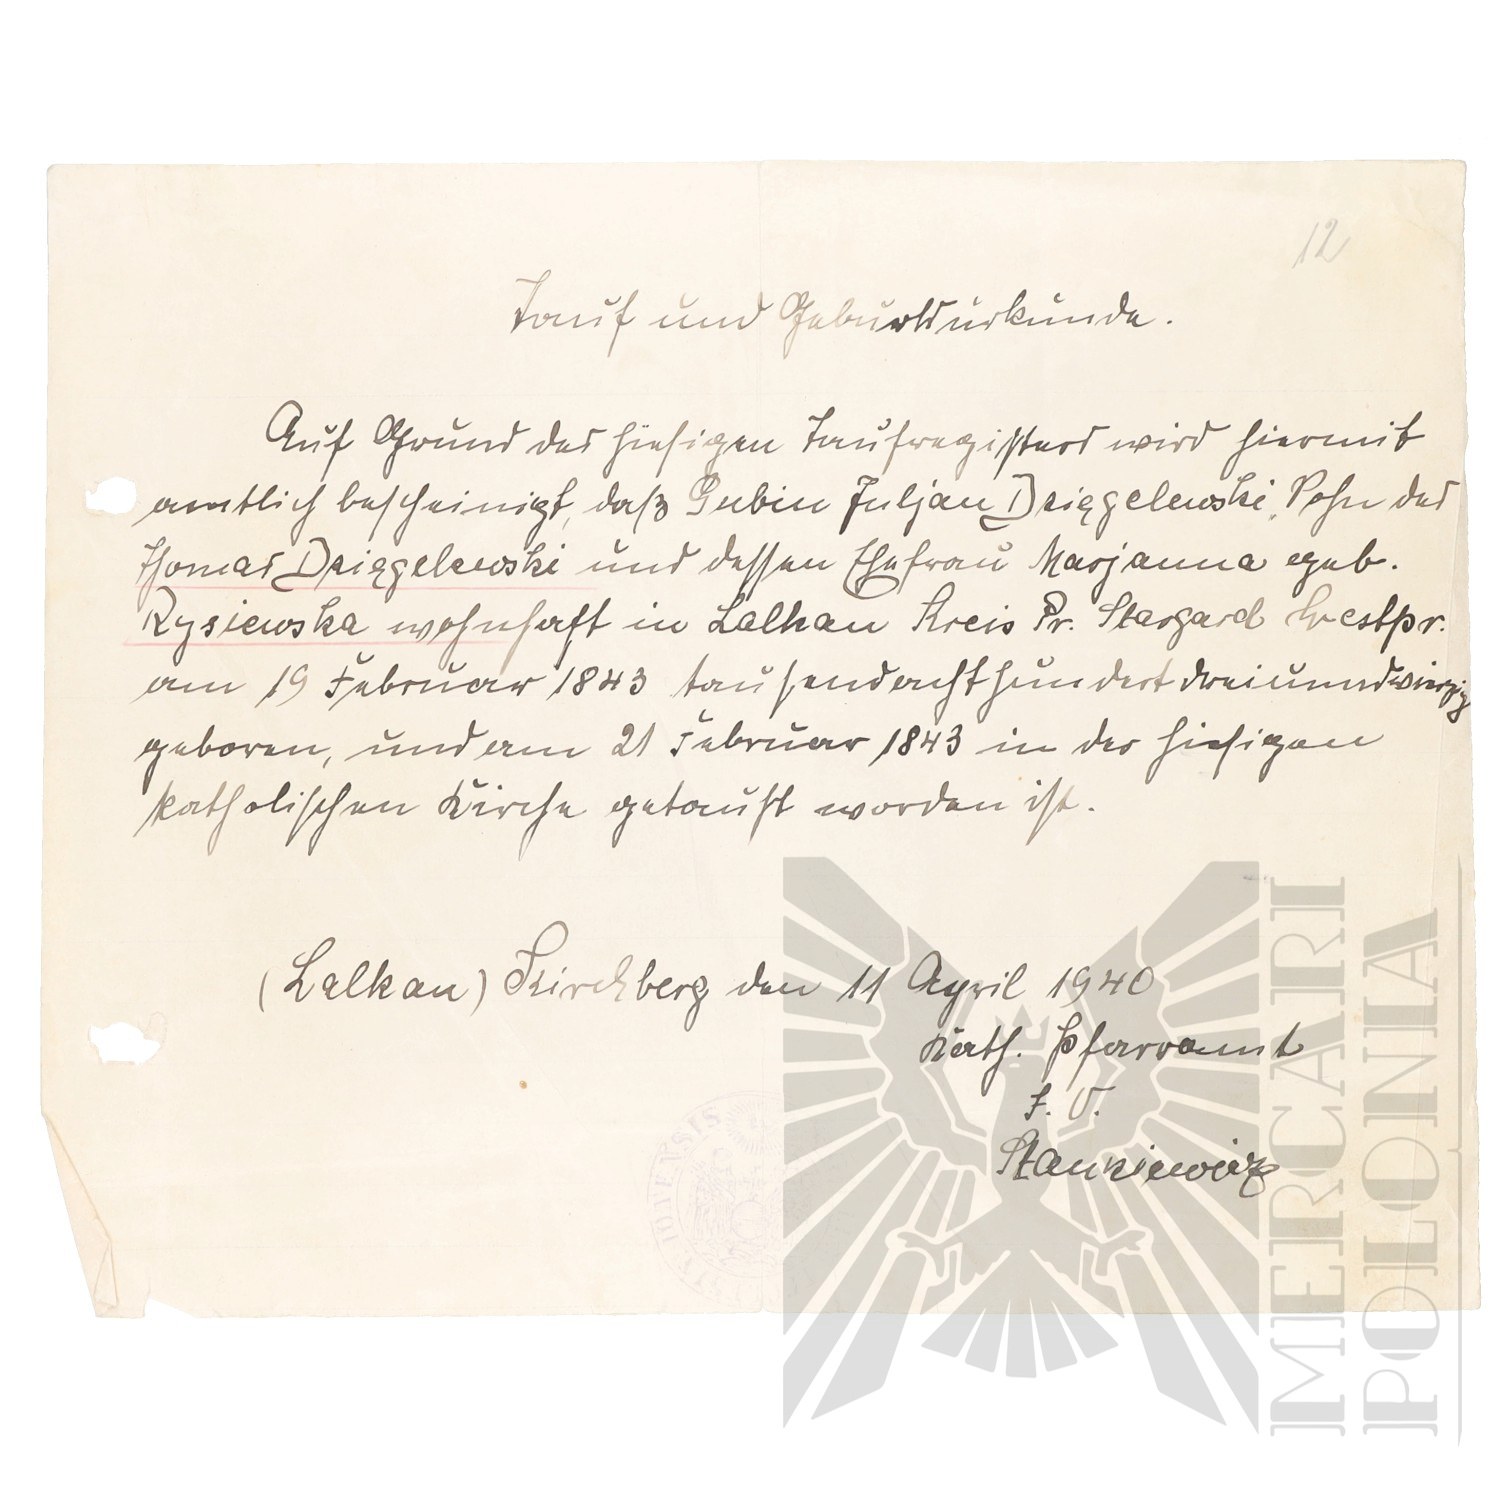 12
Tauf und Geburtsurkunde.
Auf Grund des hiesigen Taufregisters wird hiermit
amtlich bescheinigt, daß Gubin Juljan Dzięgelewski, Sohn des
Thomas Dzięgelewski und dessen Ehefrau Marjanna geb.
Rysiewska wohnhaft in Lalkau Kreis Pr. Stargard Westpr.
am 19 Februar 1843 tausendachthundert dreiundvierzig
geboren, und am 21 Februar 1843 in der hiesigen
katholischen Kirche getauft worden ist.
(Lalkau) Kirchberg den 11 April 1940
Kath. Pfarramt
I. V.
Stankiewicz
MERCARI
POLONIA